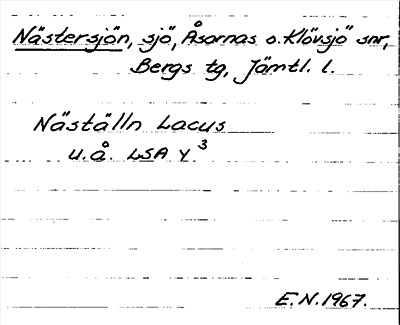 Nästersjön, sjö, Åsarnas o. Klövsjö snr,
Bergs tg, Jämtl. l.
Näställn Lacus
u.å. LSA Y 3
E.N. 1967.